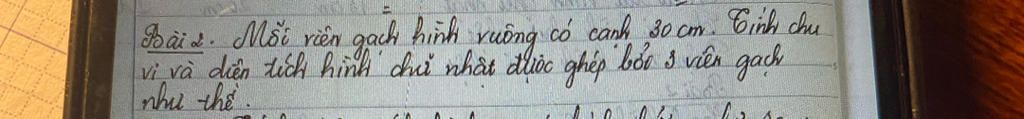 Bài 2. Mỗi viên gạch hình vuông có cạnh 30 cm. Tính chu
vi và diện tích hình chữ nhật được ghép bởi 3 viên gạch
như thế.